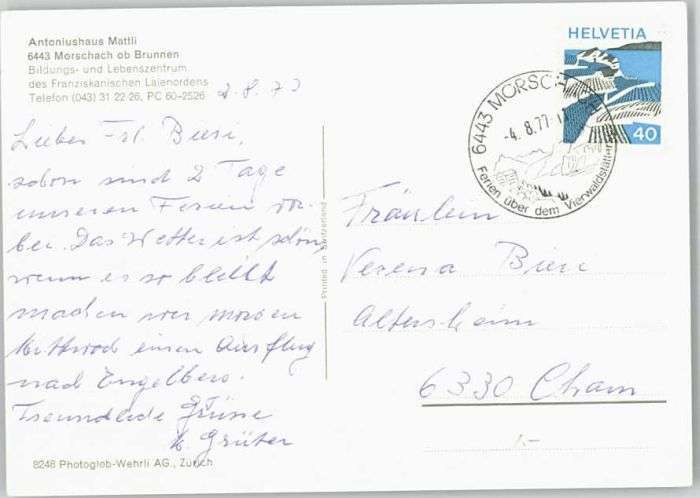 Antoniushaus Mattli
6443 Morschach ob Brunnen
Bildungs- und Lebenszentrum
des Franziskanischen Laienordens
Telefon (043) 31 22 26, PC 60-2526
2.8.77
Liebes Frl. Bieri,
schon sind 2 Tage
unseren Ferien vor-
bei. Das Wetter ist schön,
wenn es so bleibt
machen wir morgen
Mittwoch einen Ausflug
nach Engelberg.
Freundliche Grüsse
Grüter
8248 Photoglob-Wehrli AG., Zürich
Printed in Switzerland
HELVETIA
40
6443 MORSCHACH
-4.8.77
Ferien über dem Vierwaldstätter
Fräulein
Verena Bieri
Altersheim
6330 Cham